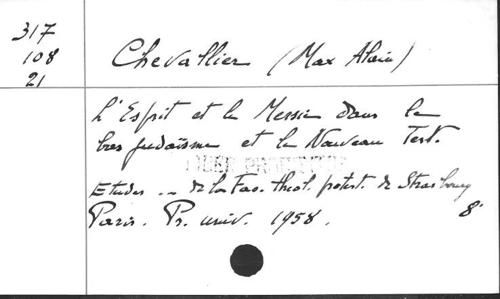 317
108
21
Chevallier (Max Alain)
L'Esprit et le Messie dans le
bas judaïsme et le Nouveau Test.
Etudes .. de la Fac. théol. protest. de Strasbourg
Paris. Pr. univ. 1958. 8°